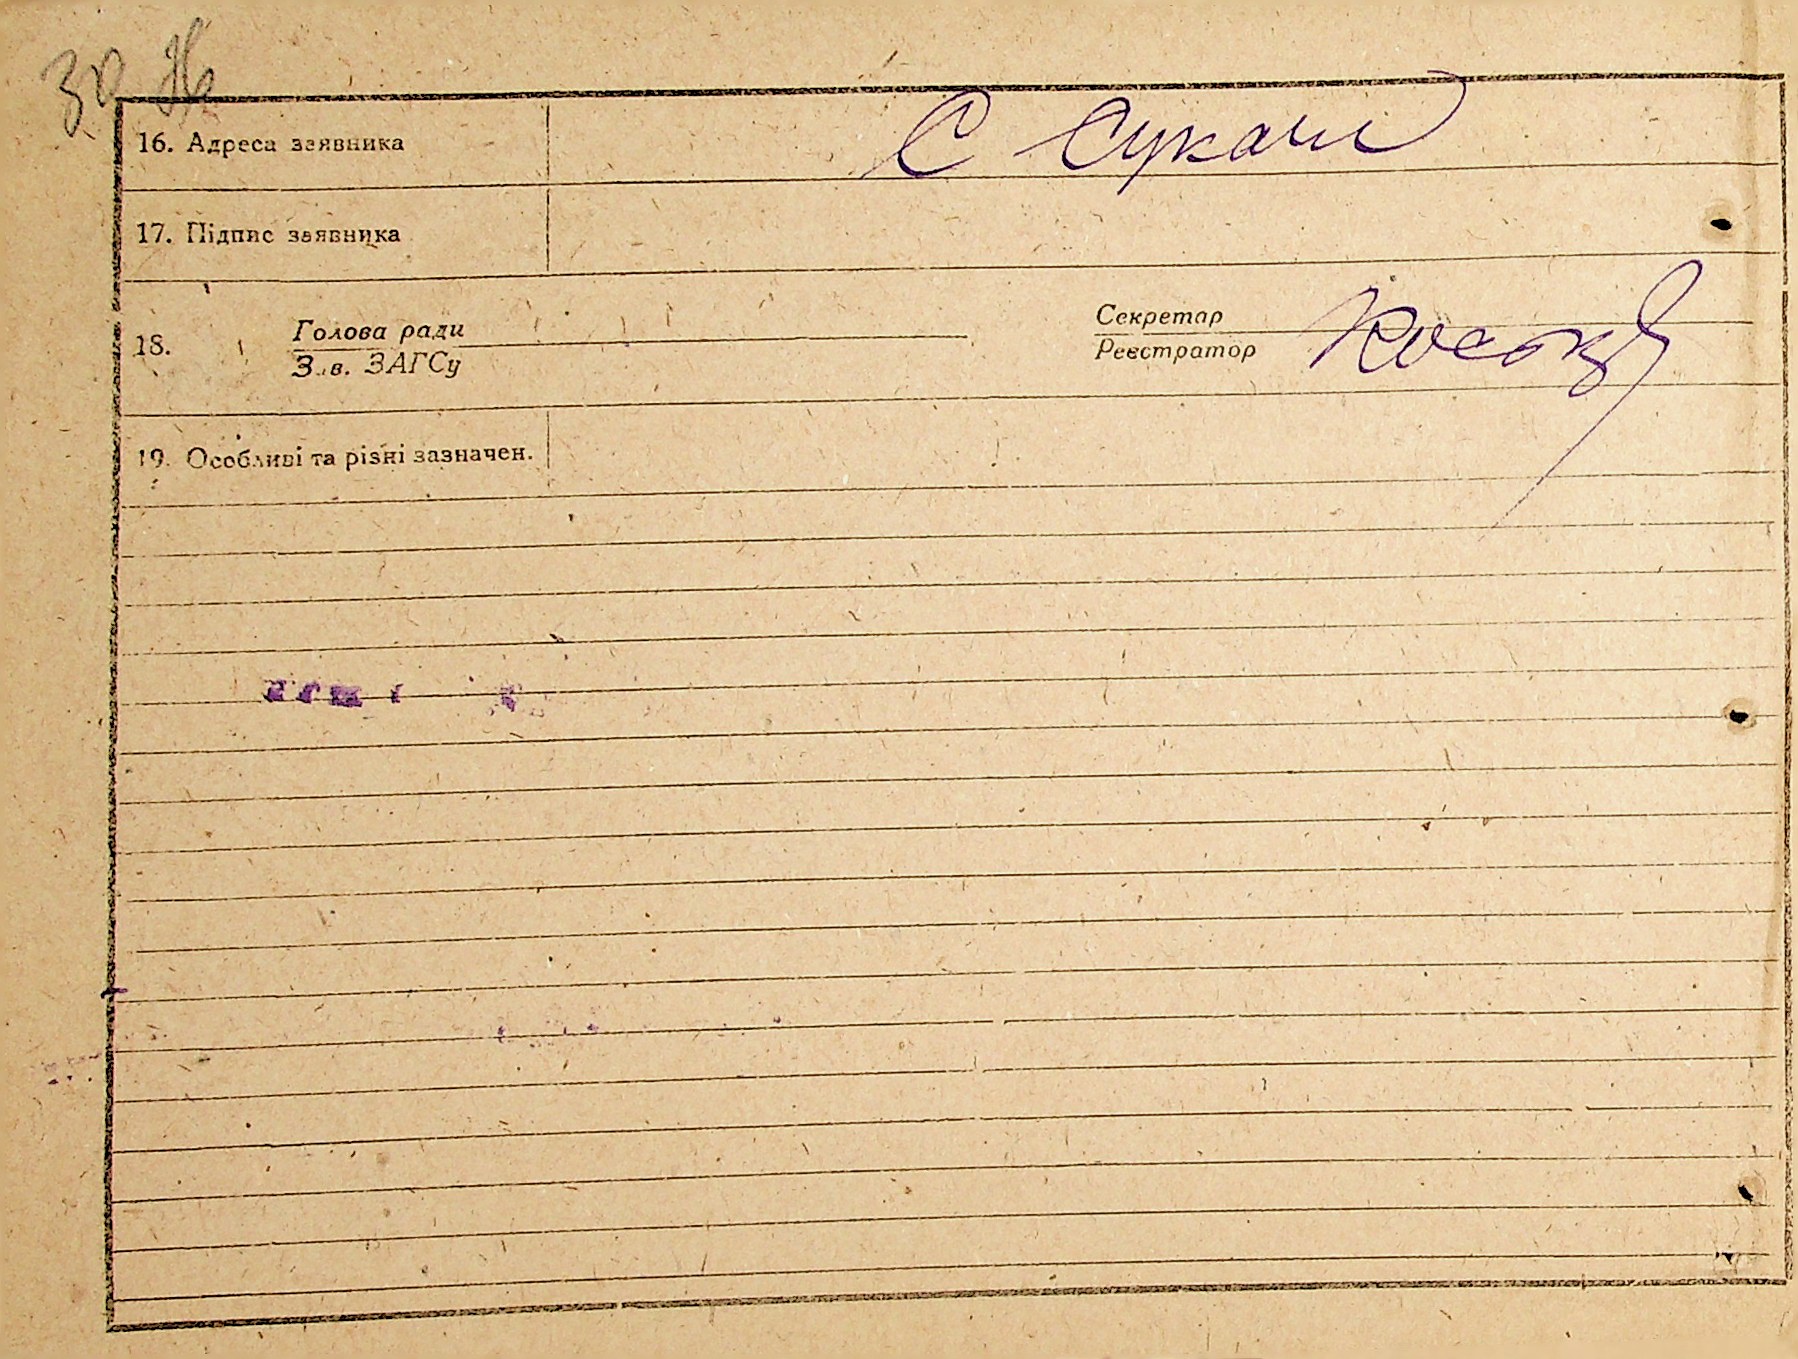 16. Адреса заявника С Сукачі
17. Підпис заявника
18. Голова ради Секретар
Зав. ЗАГСу Реєстратор
19. Особливі та різні зазначен.